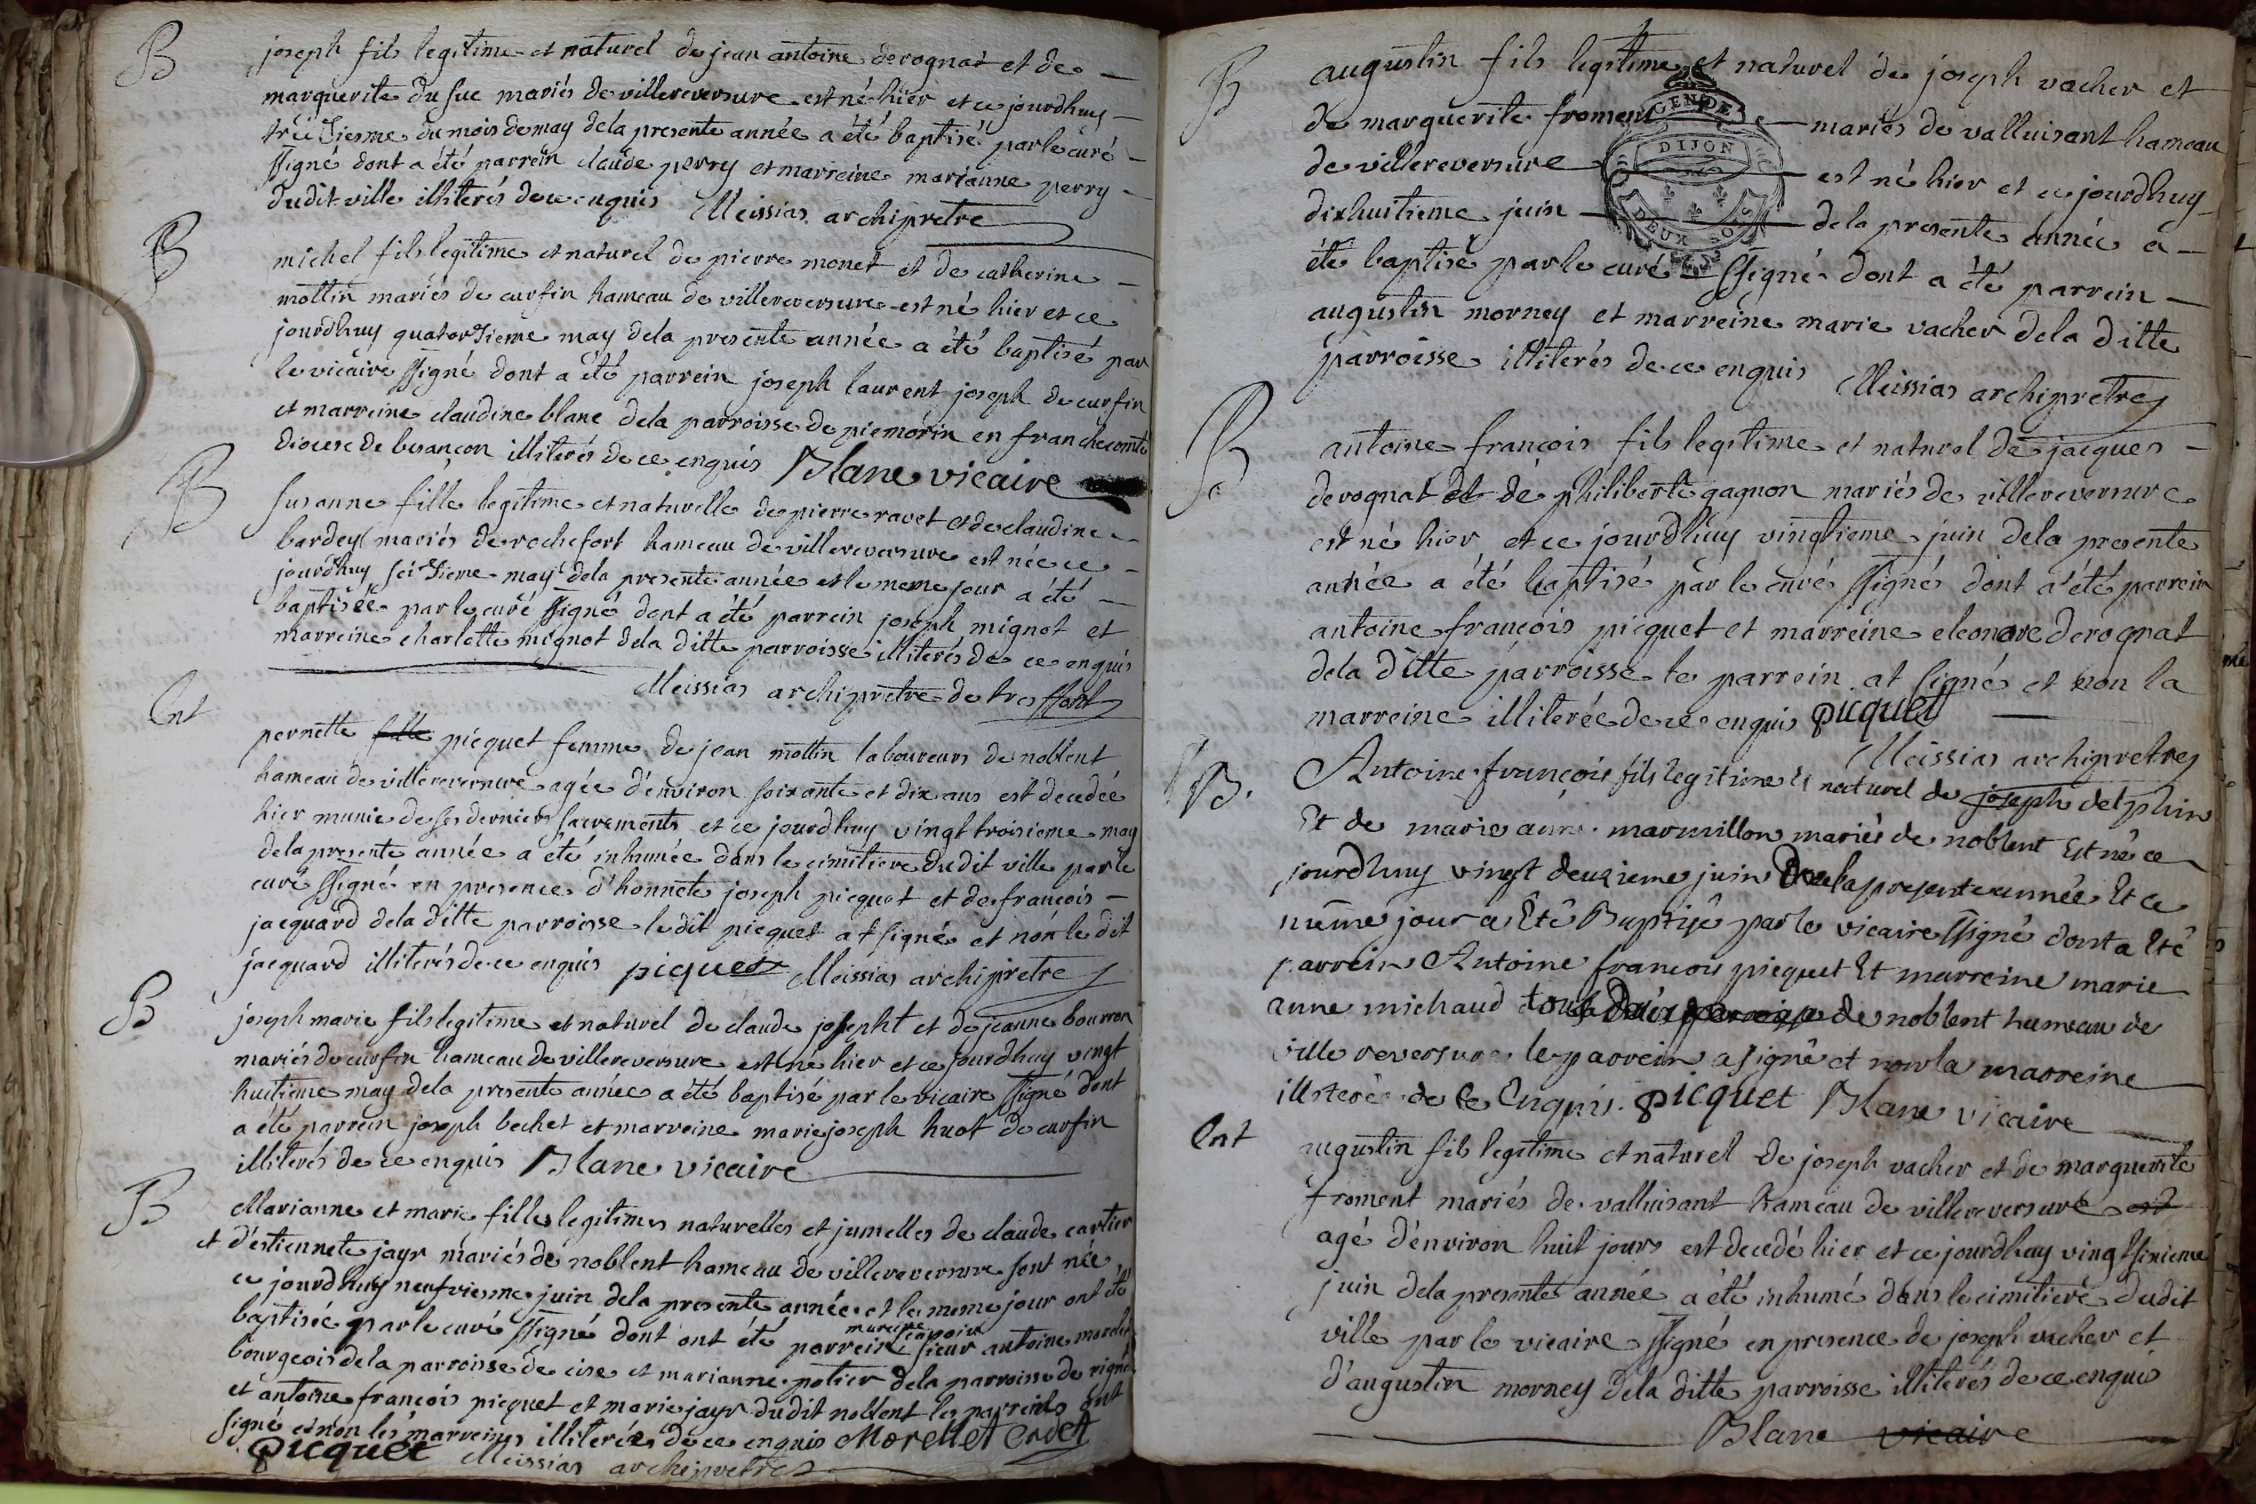 B
joseph fils legitime et naturel de jean antoine derognat et de
marguerite du suc mariés de villereversure est né hier et ce jourdhuy
treiziesme du mois de may dela presente année a été baptisé par le curé
ssigné dont a été parrein claude perry et marreine marianne perry
dudit ville illiterés de ce enquis Meissias archipretre
B
michel fils legitime et naturel de pierre monet et de catherine
mottin mariés de curfin hameau de villereversure est né hier et ce
jourdhuy quatorzieme may dela presente année a été baptisé par
le vicaire ssigné dont a été parrein joseph laurent joseph de curfin
et marreine claudine blanc dela parroisse de piemorin en franchecomté
diocese de besançon illiterés de ce enquis Blanc vicaire
B
susanne fille legitime et naturelle de pierre ravet et de claudine
bardey mariés de rochefort hameau de villereversure est née ce
jourdhuy seizieme may dela presente année et le meme jour a été
baptisée par le curé ssigné dont a été parrein joseph mignot et
marreine charlotte mignot dela ditte parroisse illiterés de ce enquis
Meissias archipretre de treffort
Ent
pernette fille picquet femme de jean mottin laboureurs de noblent
hameau de villereversure agée d'environ soixante et dix ans est decedée
hier munie de ses derniers sacrements et ce jourdhuy vingt troisieme may
dela presente année a été inhumée dans le cimitiere dudit ville par le
curé ssigné en presence d'honnete joseph picquet et de francois
jacquard dela ditte parroisse le dit picquet at signé et non le dit
jacquard illiterés de ce enquis piquet Meissias archipretre
B
joseph marie fils legitime et naturel de claude josepht et de jeanne bourron
mariés de curfin hameau de villereversure est né hier et ce jourdhuy vingt
huitieme may dela presente année a été baptisé par le vicaire ssigné dont
a été parrein joseph bechet et marreine marie joseph huot de curfin
illiterés de ce enquis Blanc vicaire
B
Marianne et marie filles legitimes naturelles et jumelles de claude cartier
et d'estiennete jayr mariés de noblent hameau de villereversure sont née
ce jourdhuy neufviesme juin dela presente année et le meme jour ont été
baptisée par le curé ssigné dont ont été parrein sieur antoine morelet
bourgeois dela parroisse de cise et marianne potier dela parroisse de rigna
et antoine françois picquet et marie jayr dudit noblent les parreins ont
signé et non les marreines illiterées de ce enquis Morellet Cadet
picquet Meissias archipretre
B
augustin fils legitime et naturel de joseph vacher et
de marguerite froment mariés de valluisant hameau
GEN DE
DIJON
DEUX SOLS
de villereversure est né hier et ce jourdhuy
dixhuitieme juin dela presente année a
été baptisé par le curé ssigné dont a été parrein
augustin morney et marreine marie vacher dela ditte
parroisse illiterés de ce enquis Meissias archipretre
B
antoine françois fils legitime et naturel de jacques
derognat et de philiberte gagnon mariés de villereversure
est né hier et ce jourdhuy vingtieme juin dela presente
année a été baptisé par le curé ssigné dont a été parrein
antoine françois picquet et marreine eleonore derognat
dela ditte parroisse le parrein at signé et non la
marreine illiterée de ce enquis picquet
Meissias archipretre
B.
Antoine françois fils legitime et naturel de joseph delphin
Et de marie anne marmillon mariés de noblent Est né ce
jourdhuy vingt deuzieme juin de la presente année Et ce
même jour a Eté Baptisé par le vicaire ssigné dont a Eté
parrein Antoine francois picquet Et marreine marie
anne michaud tous deux de noblent hameau de
villereversure le parrein a signé et non la marreine
illiterée de ce Enquis. picquet Blanc vicaire
Ent
augustin fils legitime et naturel de joseph vacher et de marguerite
froment mariés de valluisant hameau de villereversure est
agé d'environ huit jours est decedé hier et ce jourdhuy vingt sixieme
juin dela presente année a été inhumé dans le cimitiere dudit
ville par le vicaire ssigné en presence de joseph vacher et
d'augustin morney dela ditte parroisse illiterés de ce enquis
Blanc vicaire